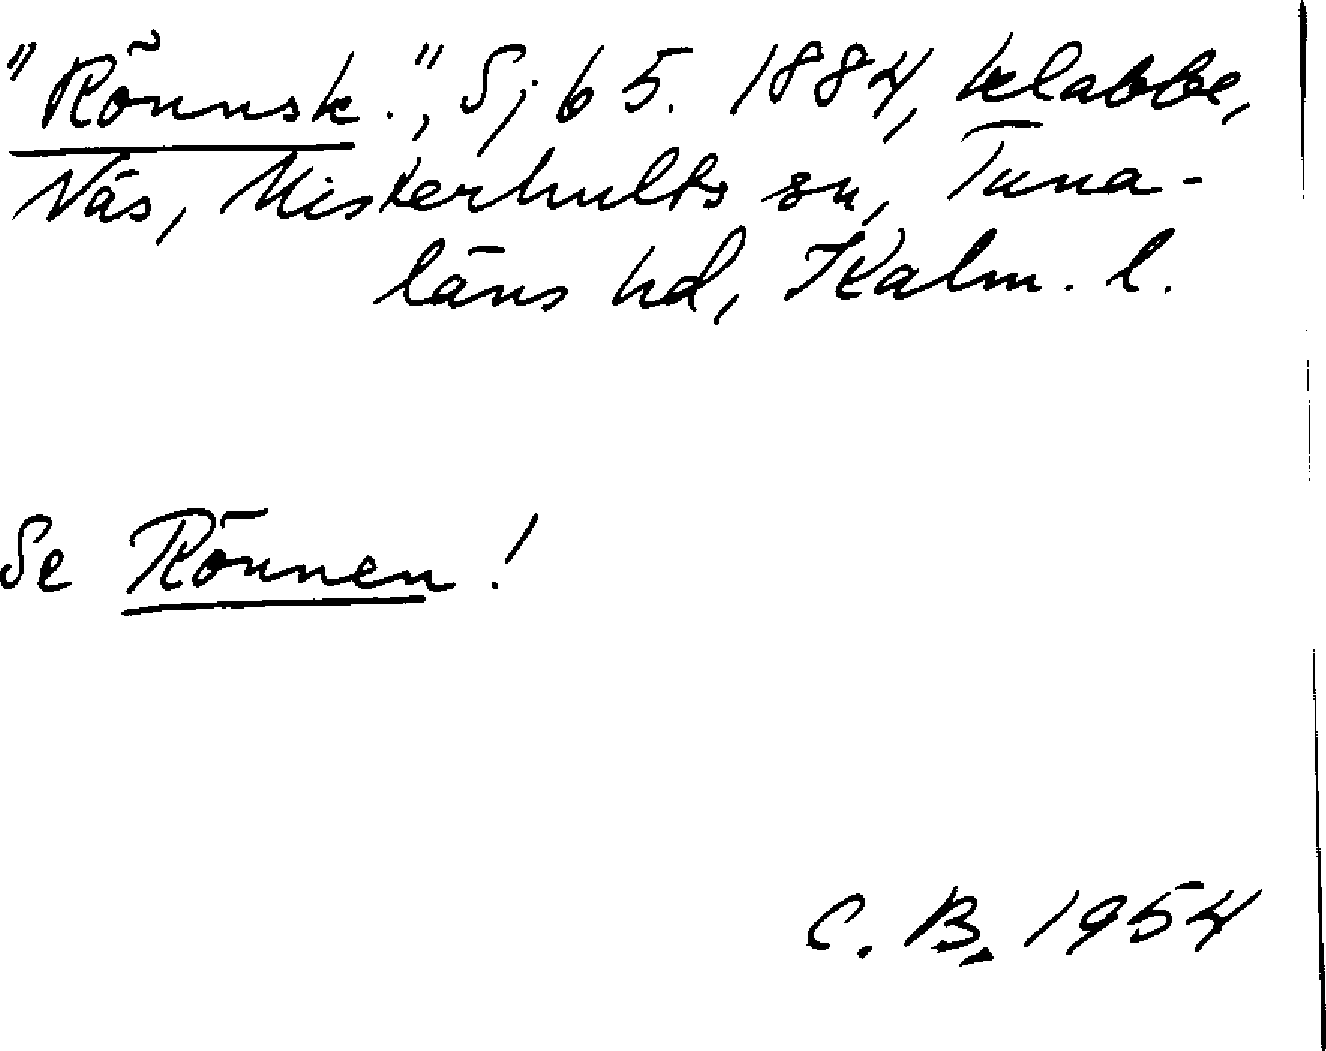 "Rönnsk.", Sj 65. 1884, klabbe,
Näs, Misterhults sn, Tuna-
läns hd, Kalm. l.
Se Rönnen!
C. B. 1954